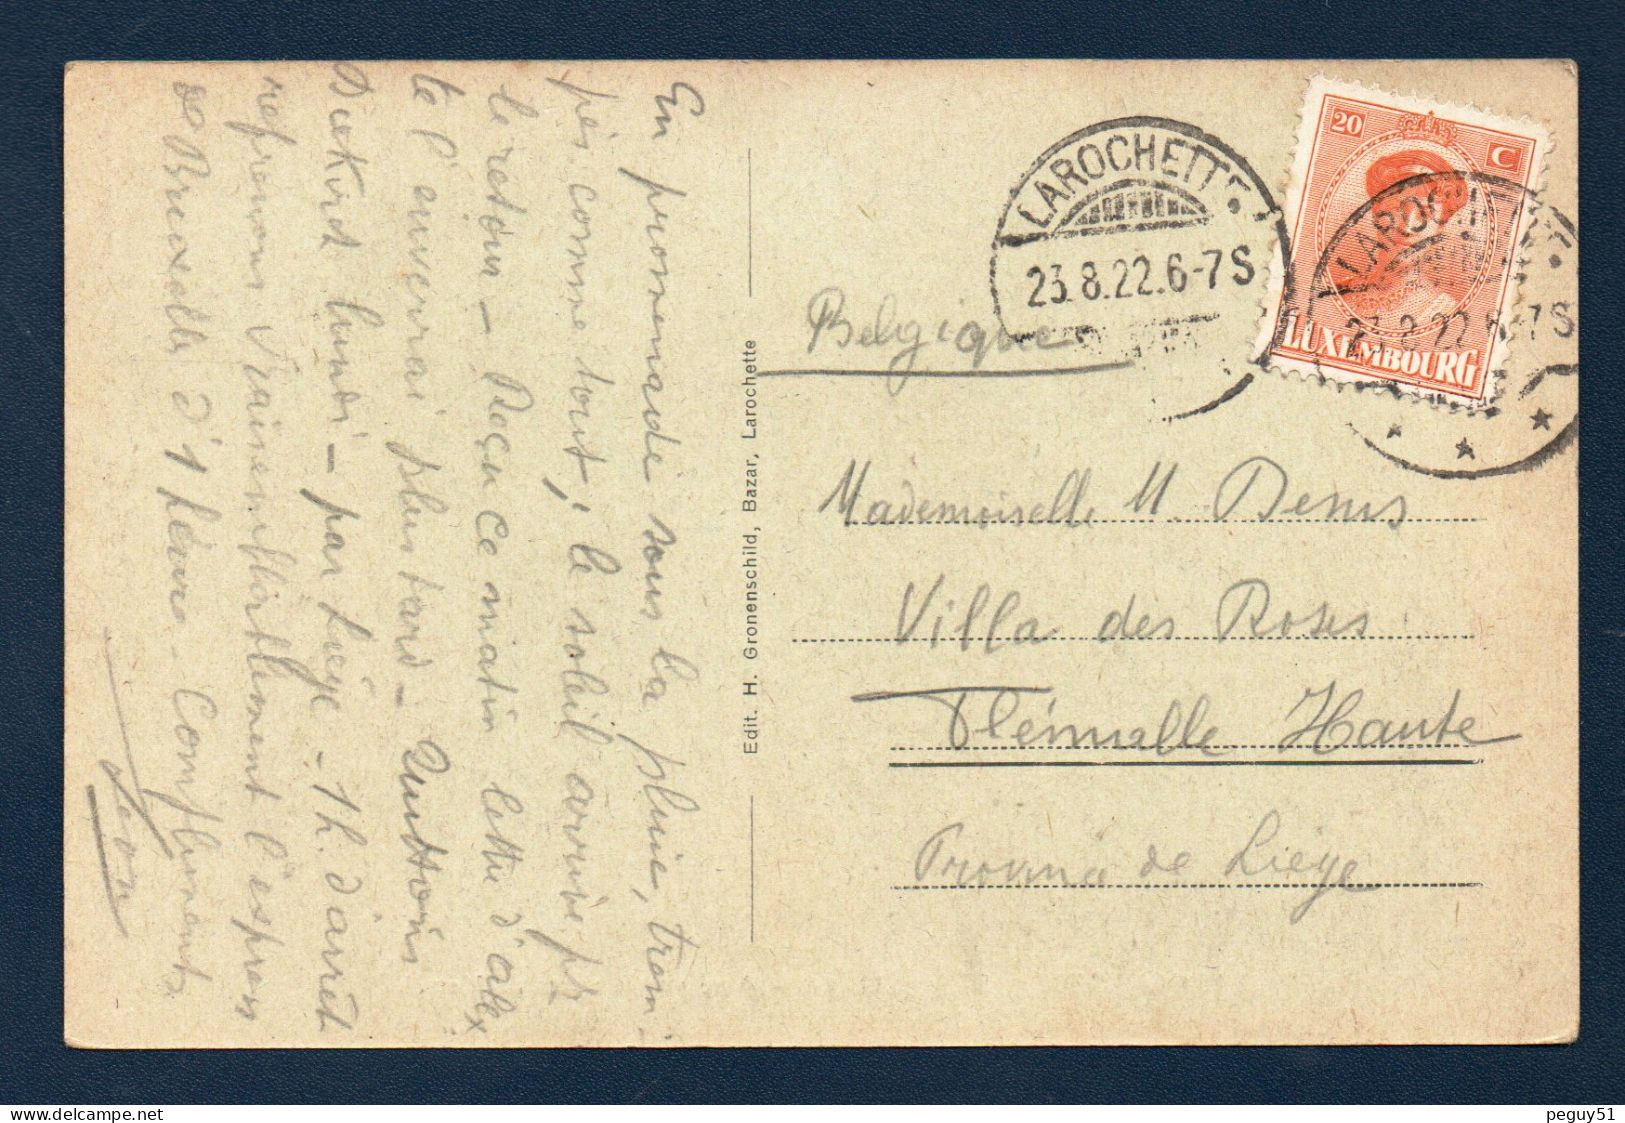 En promenade sous la pluie, trem-
pés comme tout, le soleil arrive pr
le retour - Reçu ce matin lettre d'alex
te l'enverrai plus tard - Quittons
Diekirch lundi - par Liège - 1h. d'arrêt
reprenons vraisemblablement l'express
de Bruxelles d'1 heure - Compliments
Léon
Edit. H. Gronenschild, Bazar, Larochette
LAROCHETTE
23.8.22.6-7S
20 C
LUXEMBOURG
LAROCHETTE
23.8.22.6-7S
Belgique
Mademoiselle M. Denis
Villa des Roses
Flémalle Haute
Province de Liège
peguy51